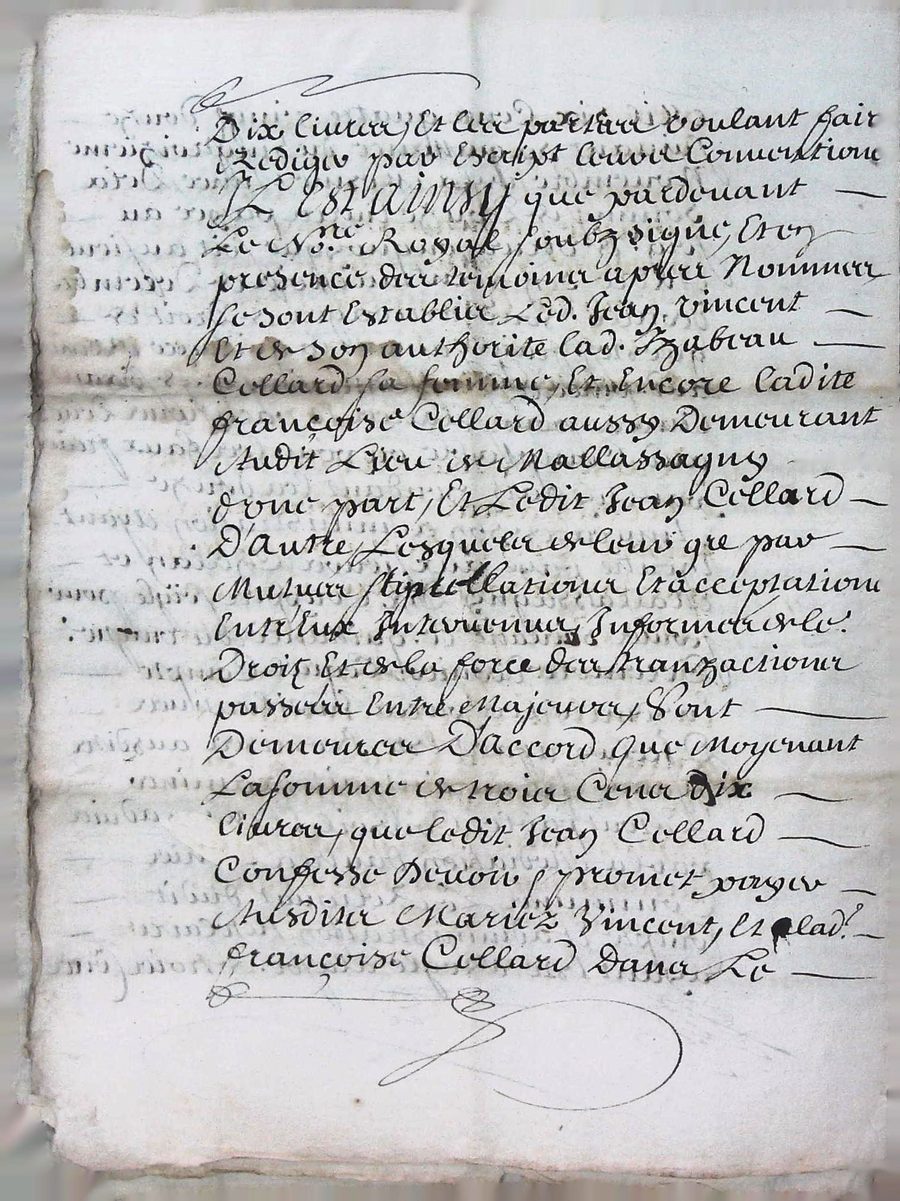 Dix livres, Et les parties voulant fair
Rediger par Escript leurs Conventions
IL Est ainsy que pardevant
Le No.re Royal soubzsigné, Et en
presence des temoins apres Nommes
se sont Establis Led. Jean Vincent
Et de son authorité lad. Yzabeau
Collard sa femme, Et Encore ladite
françoise Collard aussy Demeurant
Audit Lieu de Mallassagny
d'une part, Et Ledit Jean Collard
D'autre, Lesquels de leur gre par
Mutues stipullations Et acceptations
Entr'Eux Intervenues, Informes de le.
Droit Et de la force des tranzactions
passees Entre Majeurs, Sont
Demeures D'accord que Moyenant
La somme de trois Cens Dix
livres, que ledit Jean Collard
Confesse Devoir, promet payer
Ausdits Mariez Vincent, Et a lad.e
françoise Collard Dans Le